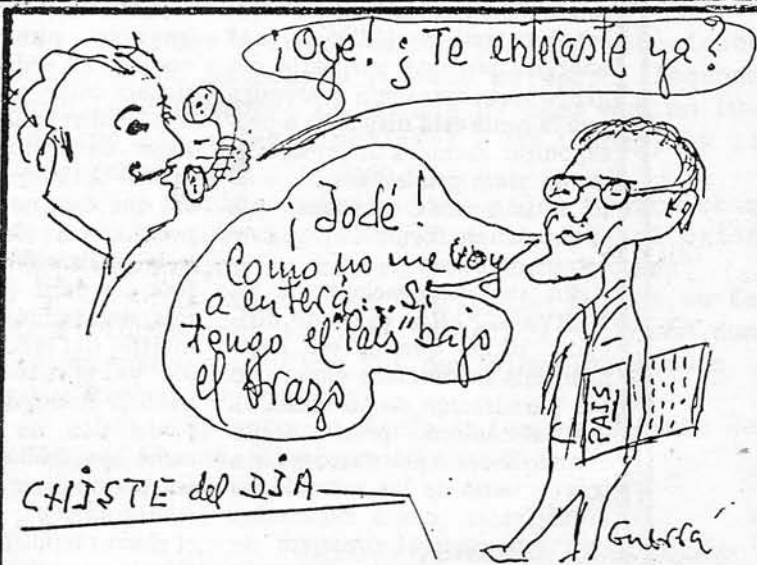 ¡Oye! ¿Te enteraste ya?
¡Jodé!
Como no me voy
a enterá si
tengo el "País" bajo
el brazo
PAIS
CHISTE del DIA